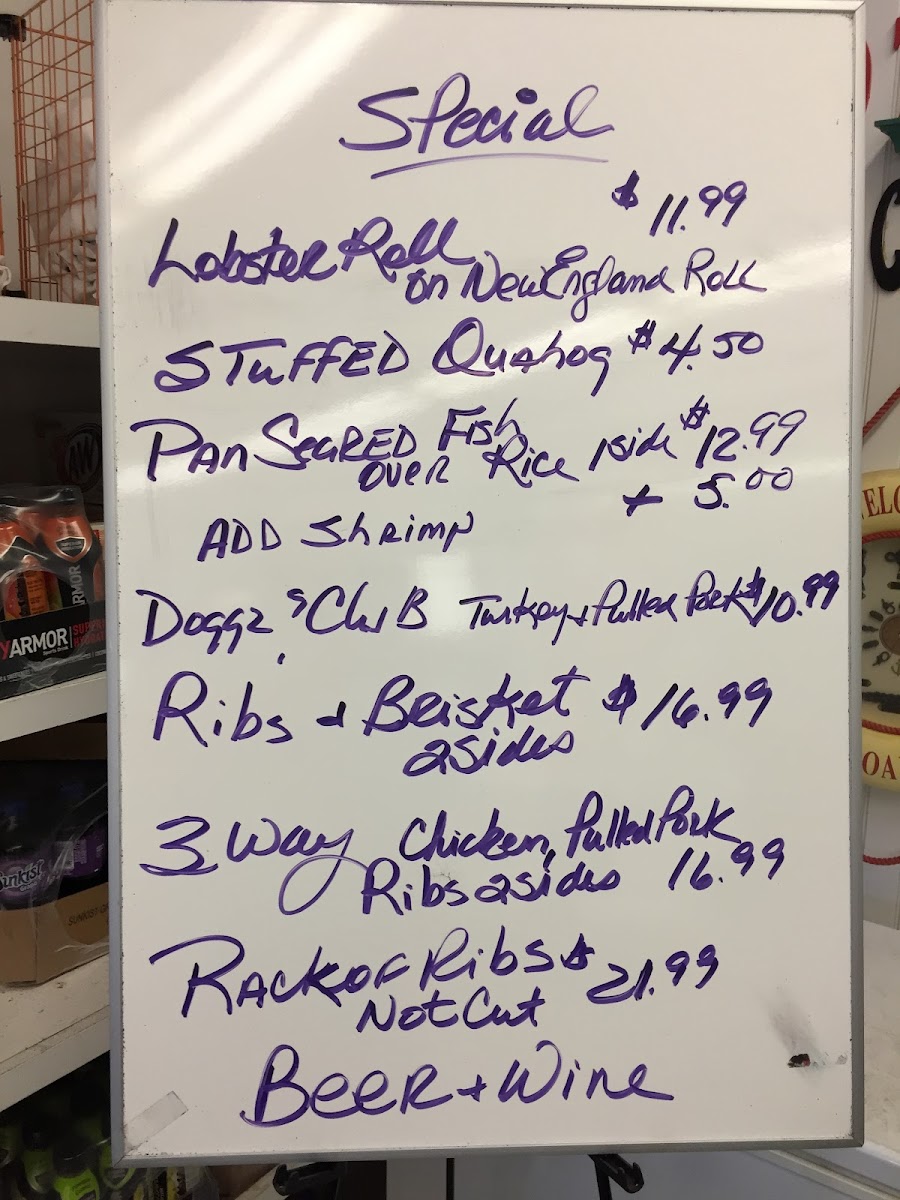 Special
$ 11.99
Lobster Roll
on New England Roll
STUFFED Quahog $4.50
Pan Seared Fish
over Rice 1 side $12.99
ADD Shrimp + 5.00
Doggz's Club Turkey + Pulled Pork $10.99
Ribs + Brisket $16.99
2 sides
3 Way Chicken, Pulled Pork
Ribs 2 sides 16.99
Rack of Ribs $21.99
Not Cut
Beer + Wine
A&W
YARMOR
ARMOR
unkist
SUNKIST
ELCO
OA